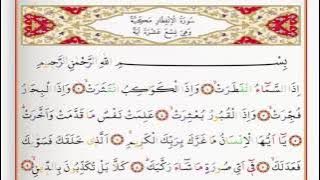 سورة الانفطار مكية
وهي تسع عشرة آية
بِسْمِ اللهِ الرَّحْمٰنِ الرَّحِيمِ
اِذَا السَّمَٓاءُ انْفَطَرَتْۙ وَاِذَا الْكَوَاكِبُ انْتَثَرَتْۙ وَاِذَا الْبِحَارُ
فُجِّرَتْۙ وَاِذَا الْقُبُورُ بُعْثِرَتْۙ عَلِمَتْ نَفْسٌ مَا قَدَّمَتْ وَاَخَّرَتْۜ
يَٓا اَيُّهَا الْاِنْسَانُ مَا غَرَّكَ بِرَبِّكَ الْكَرِيمِۙ اَلَّذِي خَلَقَكَ فَسَوّٰيكَ
فَعَدَلَكَۙ فِٓي اَيِّ صُورَةٍ مَا شَٓاءَ رَكَّبَكَۜ كَلَّا بَلْ تُكَذِّبُونَ بِالدِّينِۙ